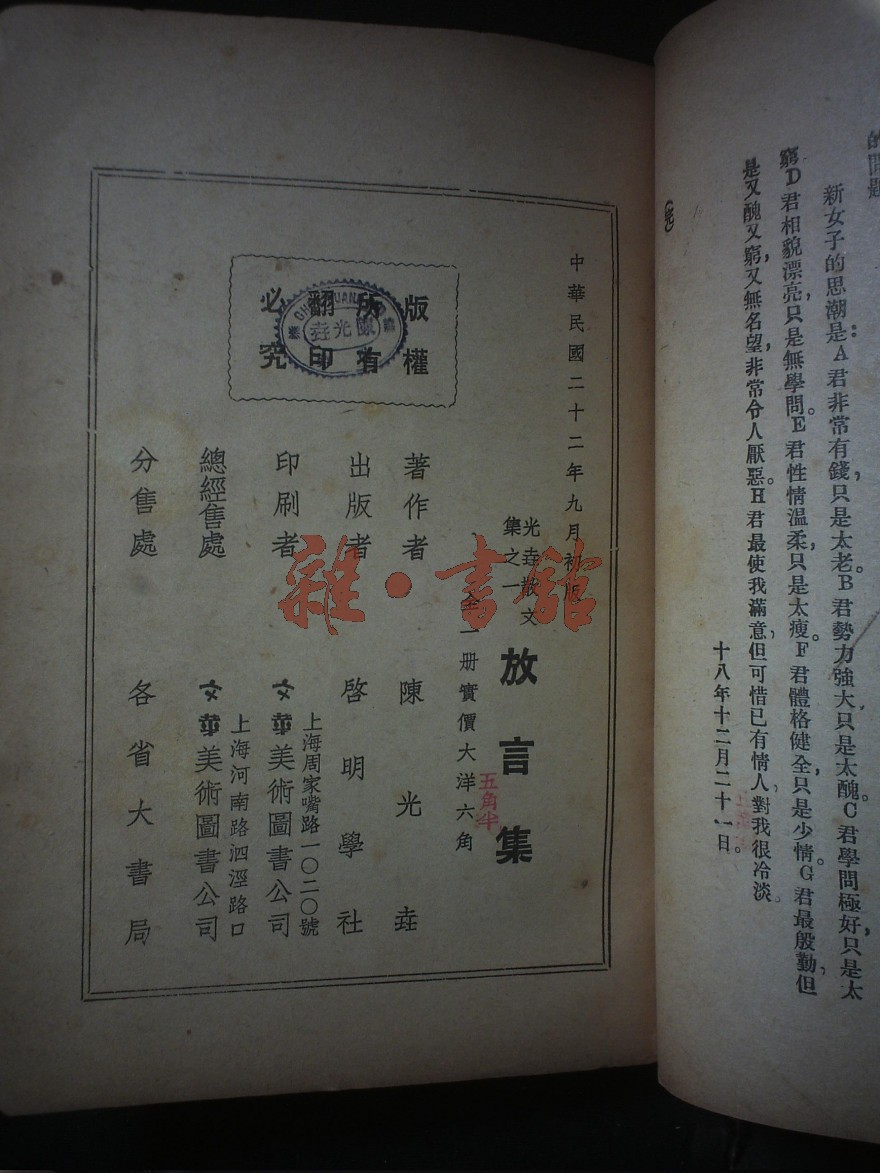 的問題
新女子的思潮是:A君非常有錢,只是太老。B君勢力強大只是太醜。C君學問極好,只是太
窮D君相貌漂亮,只是無學問。E君性情溫柔,只是太瘦。F君體格健全,只是少情。G君最殷勤,但
是又醜又窮,又無名望,非常令人厭惡。H君最使我滿意,但可惜已有情人,對我很冷淡。
十八年十二月二十一日。
(完)
中華民國二十二年九月初版
光垚散文
集之一
放言集
全一册實價大洋六角
五角半
版權
所有
翻印
必究
陳光垚
著作者 陳光垚
出版者 啓明學社
印刷者
上海周家嘴路一〇二〇號
文華美術圖書公司
總經售處
上海河南路泗涇路口
文華美術圖書公司
分售處 各省大書局
雜·書舘